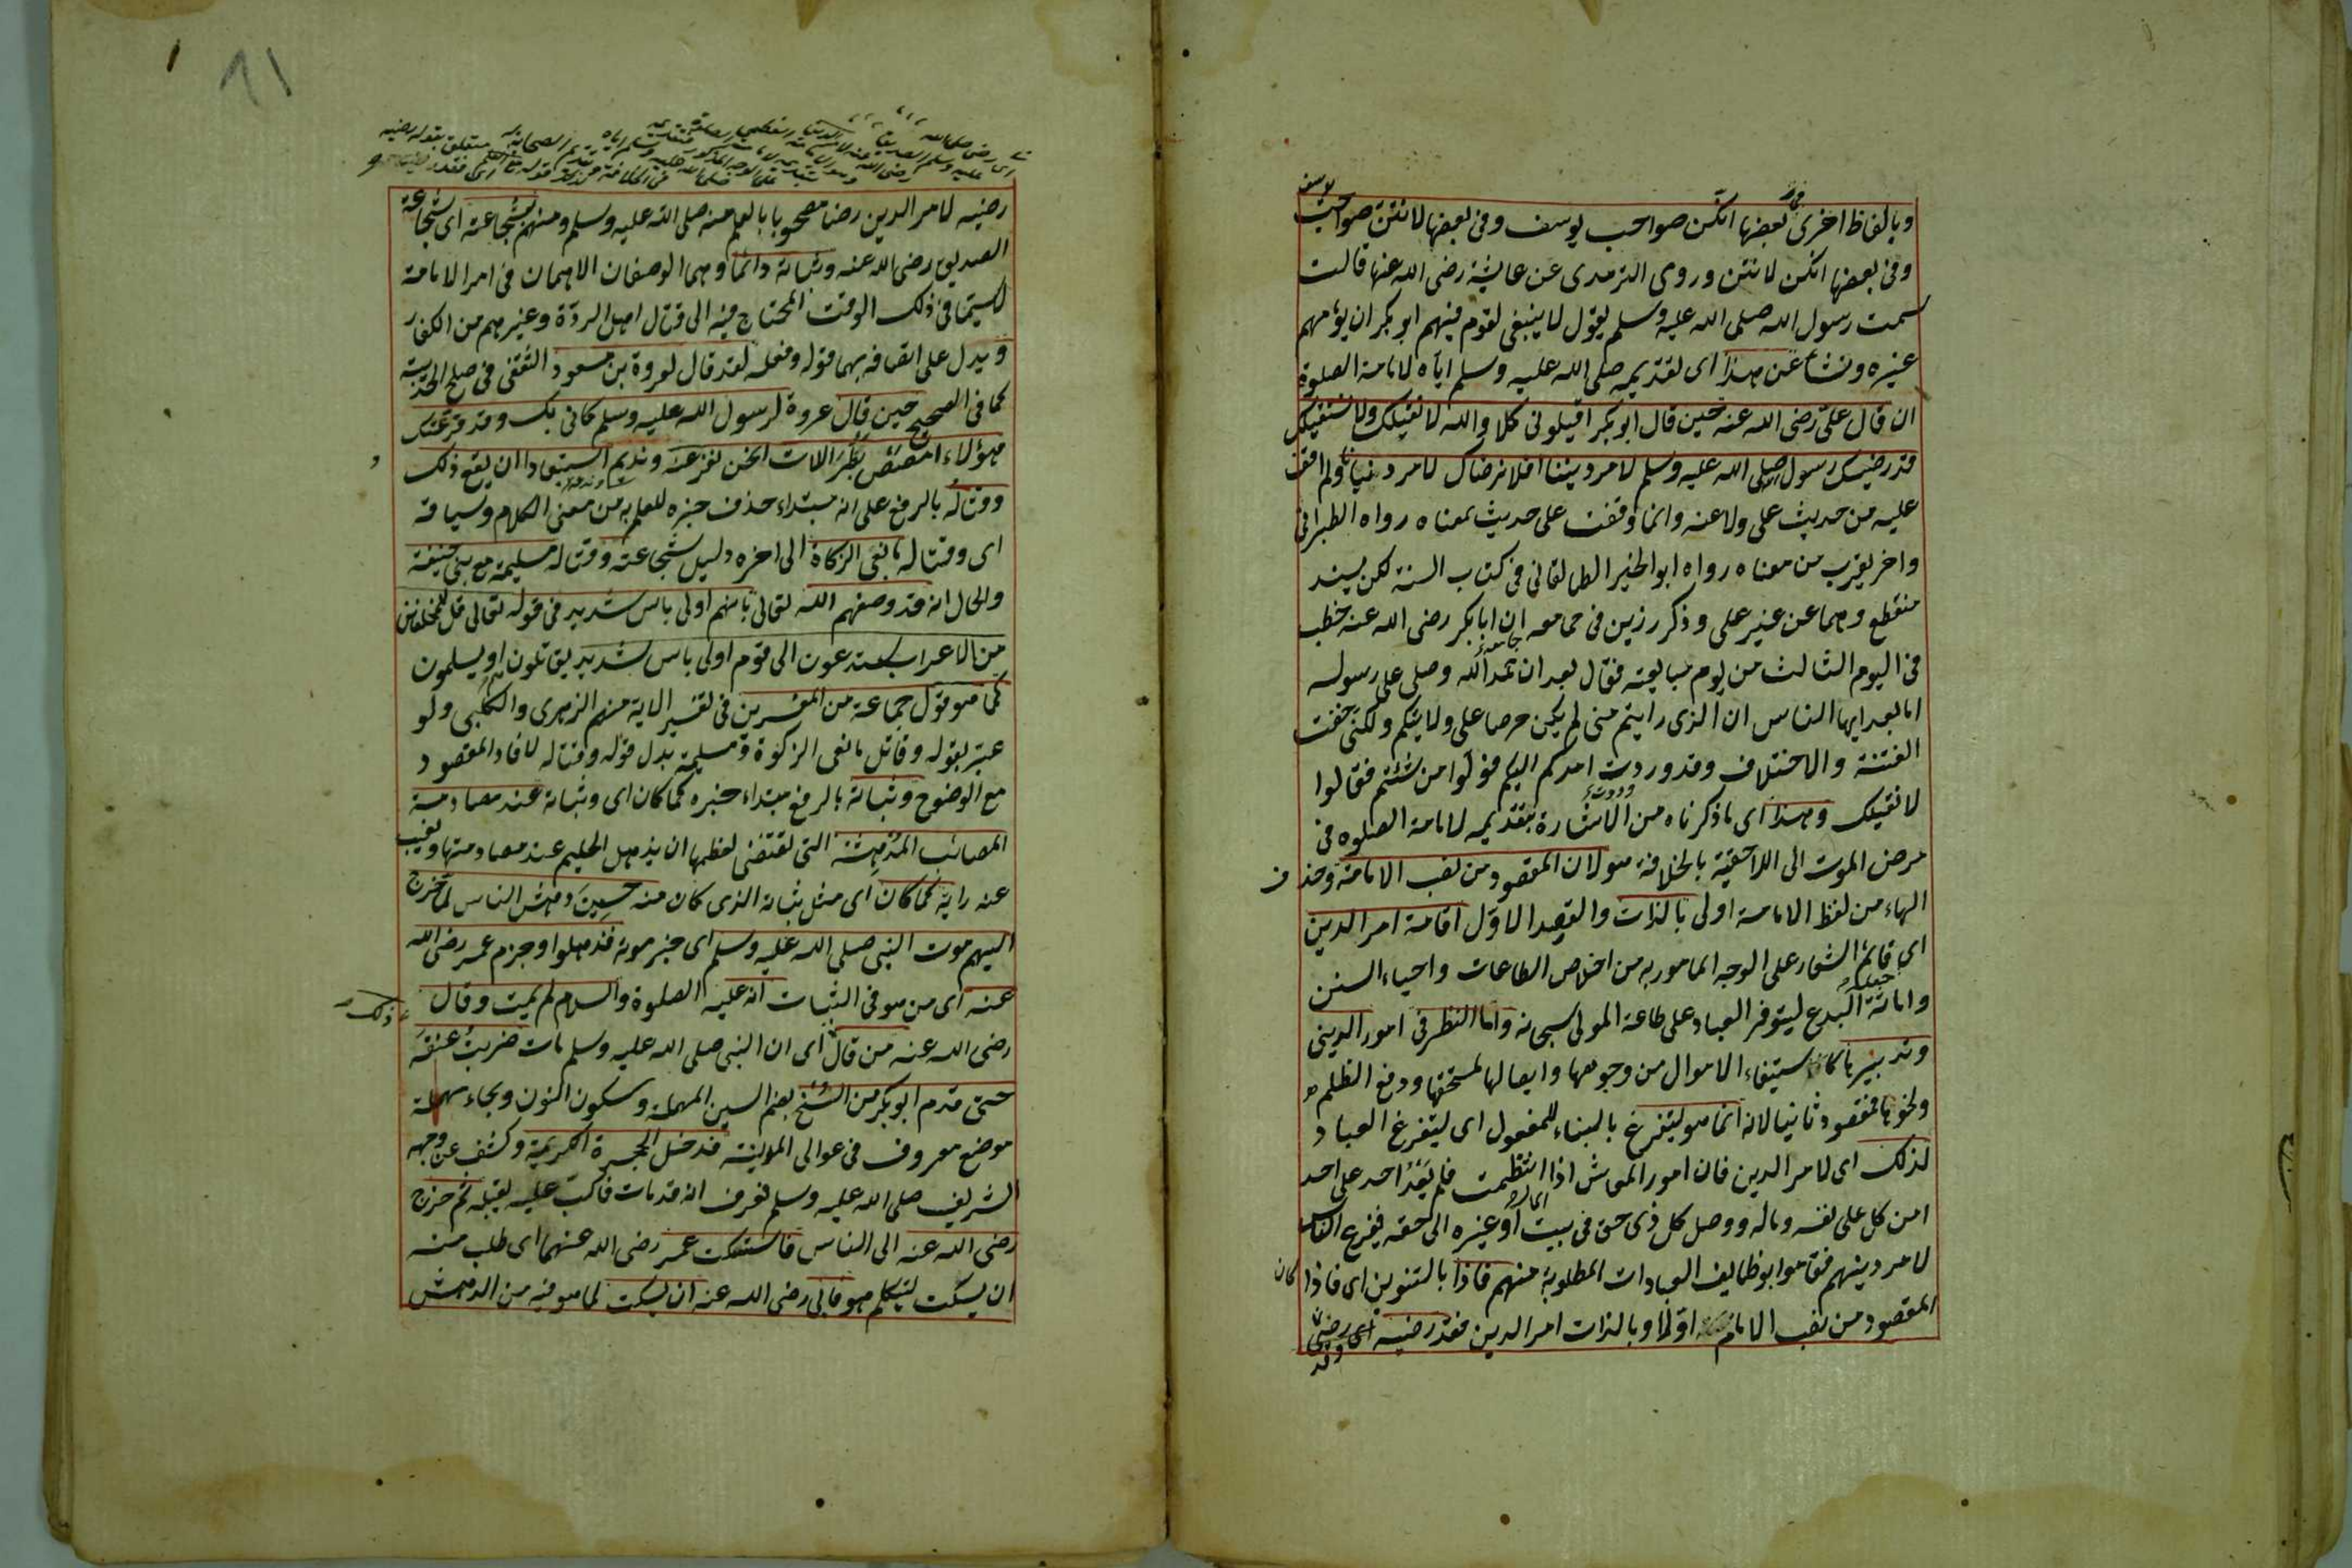 وبالفاظ اخرى في بعضها انكن صواحب يوسف وفي بعضها لانتن صواحب يوسف
وفي بعضها انكن لانتن وروى الترمذى عن عايشة رضى الله عنها قالت
سمعت رسول الله صلى الله عليه وسلم يقول لا ينبغى لقوم فيهم ابو بكر ان يؤمهم
غيره ونشأ عن هذا اى تقديمه صلى الله عليه وسلم اياه لامامة الصلوة
ان قال على رضى الله عنه حين قال ابو بكر اقيلونى كلا والله لا نقيلك ولا نستقيلك
قد رضيك رسول الله صلى الله عليه وسلم لامر ديننا افلا نرضاك لامر دنيانا ولم اقف
عليه من حديث على ولا عنه وانما وقفت على حديث بمعناه رواه الطبرانى
واخر يقرب من معناه رواه ابو الخير الطالقانى فى كتاب السنة لكن بسند
منقطع وهما عن غير على وذكر رزين فى جامعه ان ابا بكر رضى الله عنه خطب
فى اليوم الثالث من يوم مبايعته فقال بعد ان حمد الله وصلى على رسوله
اما بعد ايها الناس ان الذى رايتم منى لم يكن حرصا على ولايتكم ولكنى خفت
الفتنة والاختلاف وقد رددت امركم اليكم فولوا من شئتم فقالوا
لا نقيلك وهذا اى ما ذكرناه من الاشارة بتقديمه لامامة الصلوه فى
مرض الموت الى الاحقية بالخلافة هو لان المقصود من نصب الامامة وحذف
الهاء من لفظ الامامة اولى بالذات والقصد الاول اقامة امر الدين
اى قائم الشعار على الوجه المامور به من اخلاص الطاعات واحياء السنن
واماتة البدع ليتوفر العباد على طاعة المولى سبحانه واما النظر فى امور الدينى
وتدبيرها كاستيفاء الاموال من وجوهها وايصالها لمستحقها ودفع الظلم
ونحوها فمقصود ثانيا لانه انما هو ليتفرغ بالبناء للمفعول اى ليتفرغ العباد
لذلك اى لامر الدين فان امور المعاش اذا انتظمت فلم يعد احد على احد
امن كل على نفسه وماله ووصل كل ذى حق فى بيت المال او غيره الى حقه فيفرغ الناس
لامر دينهم فقاموا بوظايف العبادات المطلوبة منهم فاذا بالتنوين اى فاذا كان
المقصود من نصب الامام اولا وبالذات امر الدين فقد رضيه اى رضى
رضيه لامر الدين رضا مصحوبا بالعلم منه صلى الله عليه وسلم ومنهم بشجاعته اى شجاعة
الصديق رضى الله عنه وثباته دائما وهما الوصفان الاهمان فى امر الامامة
لاسيما فى ذلك الوقت المحتاج فيه الى قتال اهل الردة وغيرهم من الكفار
ويدل على اتصافه بهما قوله وفعله لقد قال لعروة بن مسعود الثقفى فى صلح الحديبية
كما فى الصحيح حين قال عروة لرسول الله عليه وسلم كانى بك وقد فر عنك
هؤلاء امصص بظر اللات انحن نفر عنه وندعه استبعادا ان يقع ذلك
وقتاله بالرفع على انه مبتداء حذف خبره للعلم به من معنى الكلام وسياقه
اى وقتاله مانعى الزكاة الى اخره دليل شجاعته وقتاله مسيلمة مع بنى حنيفة
والحال انه قد وصفهم الله تعالى بانهم اولى باس شديد فى قوله تعالى قل للمخلفين
من الاعراب ستدعون الى قوم اولى باس شديد يقاتلون او يسلمون
كما هو قول جماعة من المفسرين فى تفسير الاية منهم الزهرى والكلبى ولو
عبر بقوله وقاتل مانعى الزكوة ومسيلمة بدل قوله وقتاله لافاد المقصود
مع الوضوح وثباته بالرفع مبتداء خبره كما كان اى وثباته عند مصادمة
المصائب المدهشة التى تقتضى لعظمها ان يذهل الحليم عند مصادمتها ويغيب
عنه رايه كما كان اى مثل ثباته الذى كان منه حين دهش الناس لما خرج
اليهم موت النبى صلى الله عليه وسلم اى خبر موته فذهلوا وجزم عمر رضى الله
عنه اى من هو فى الثبات انه عليه الصلوة والسلام لم يمت وقال
رضى الله عنه من قال اى ان النبى صلى الله عليه وسلم مات ضربت عنقه
حتى قدم ابو بكر من السنح بضم السين المهملة وسكون النون وبحاء مهملة
موضع معروف فى عوالى المدينة فدخل الحجرة الكريمة وكشف عن وجهه
الشريف صلى الله عليه وسلم فعرف انه قد مات فاكب عليه يقبله ثم خرج
رضى الله عنه الى الناس فاستسكت عمر رضى الله عنهما اى طلب منه
ان يسكت ليتكلم هو فابى رضى الله عنه ان يسكت لما هو فيه من الدهش